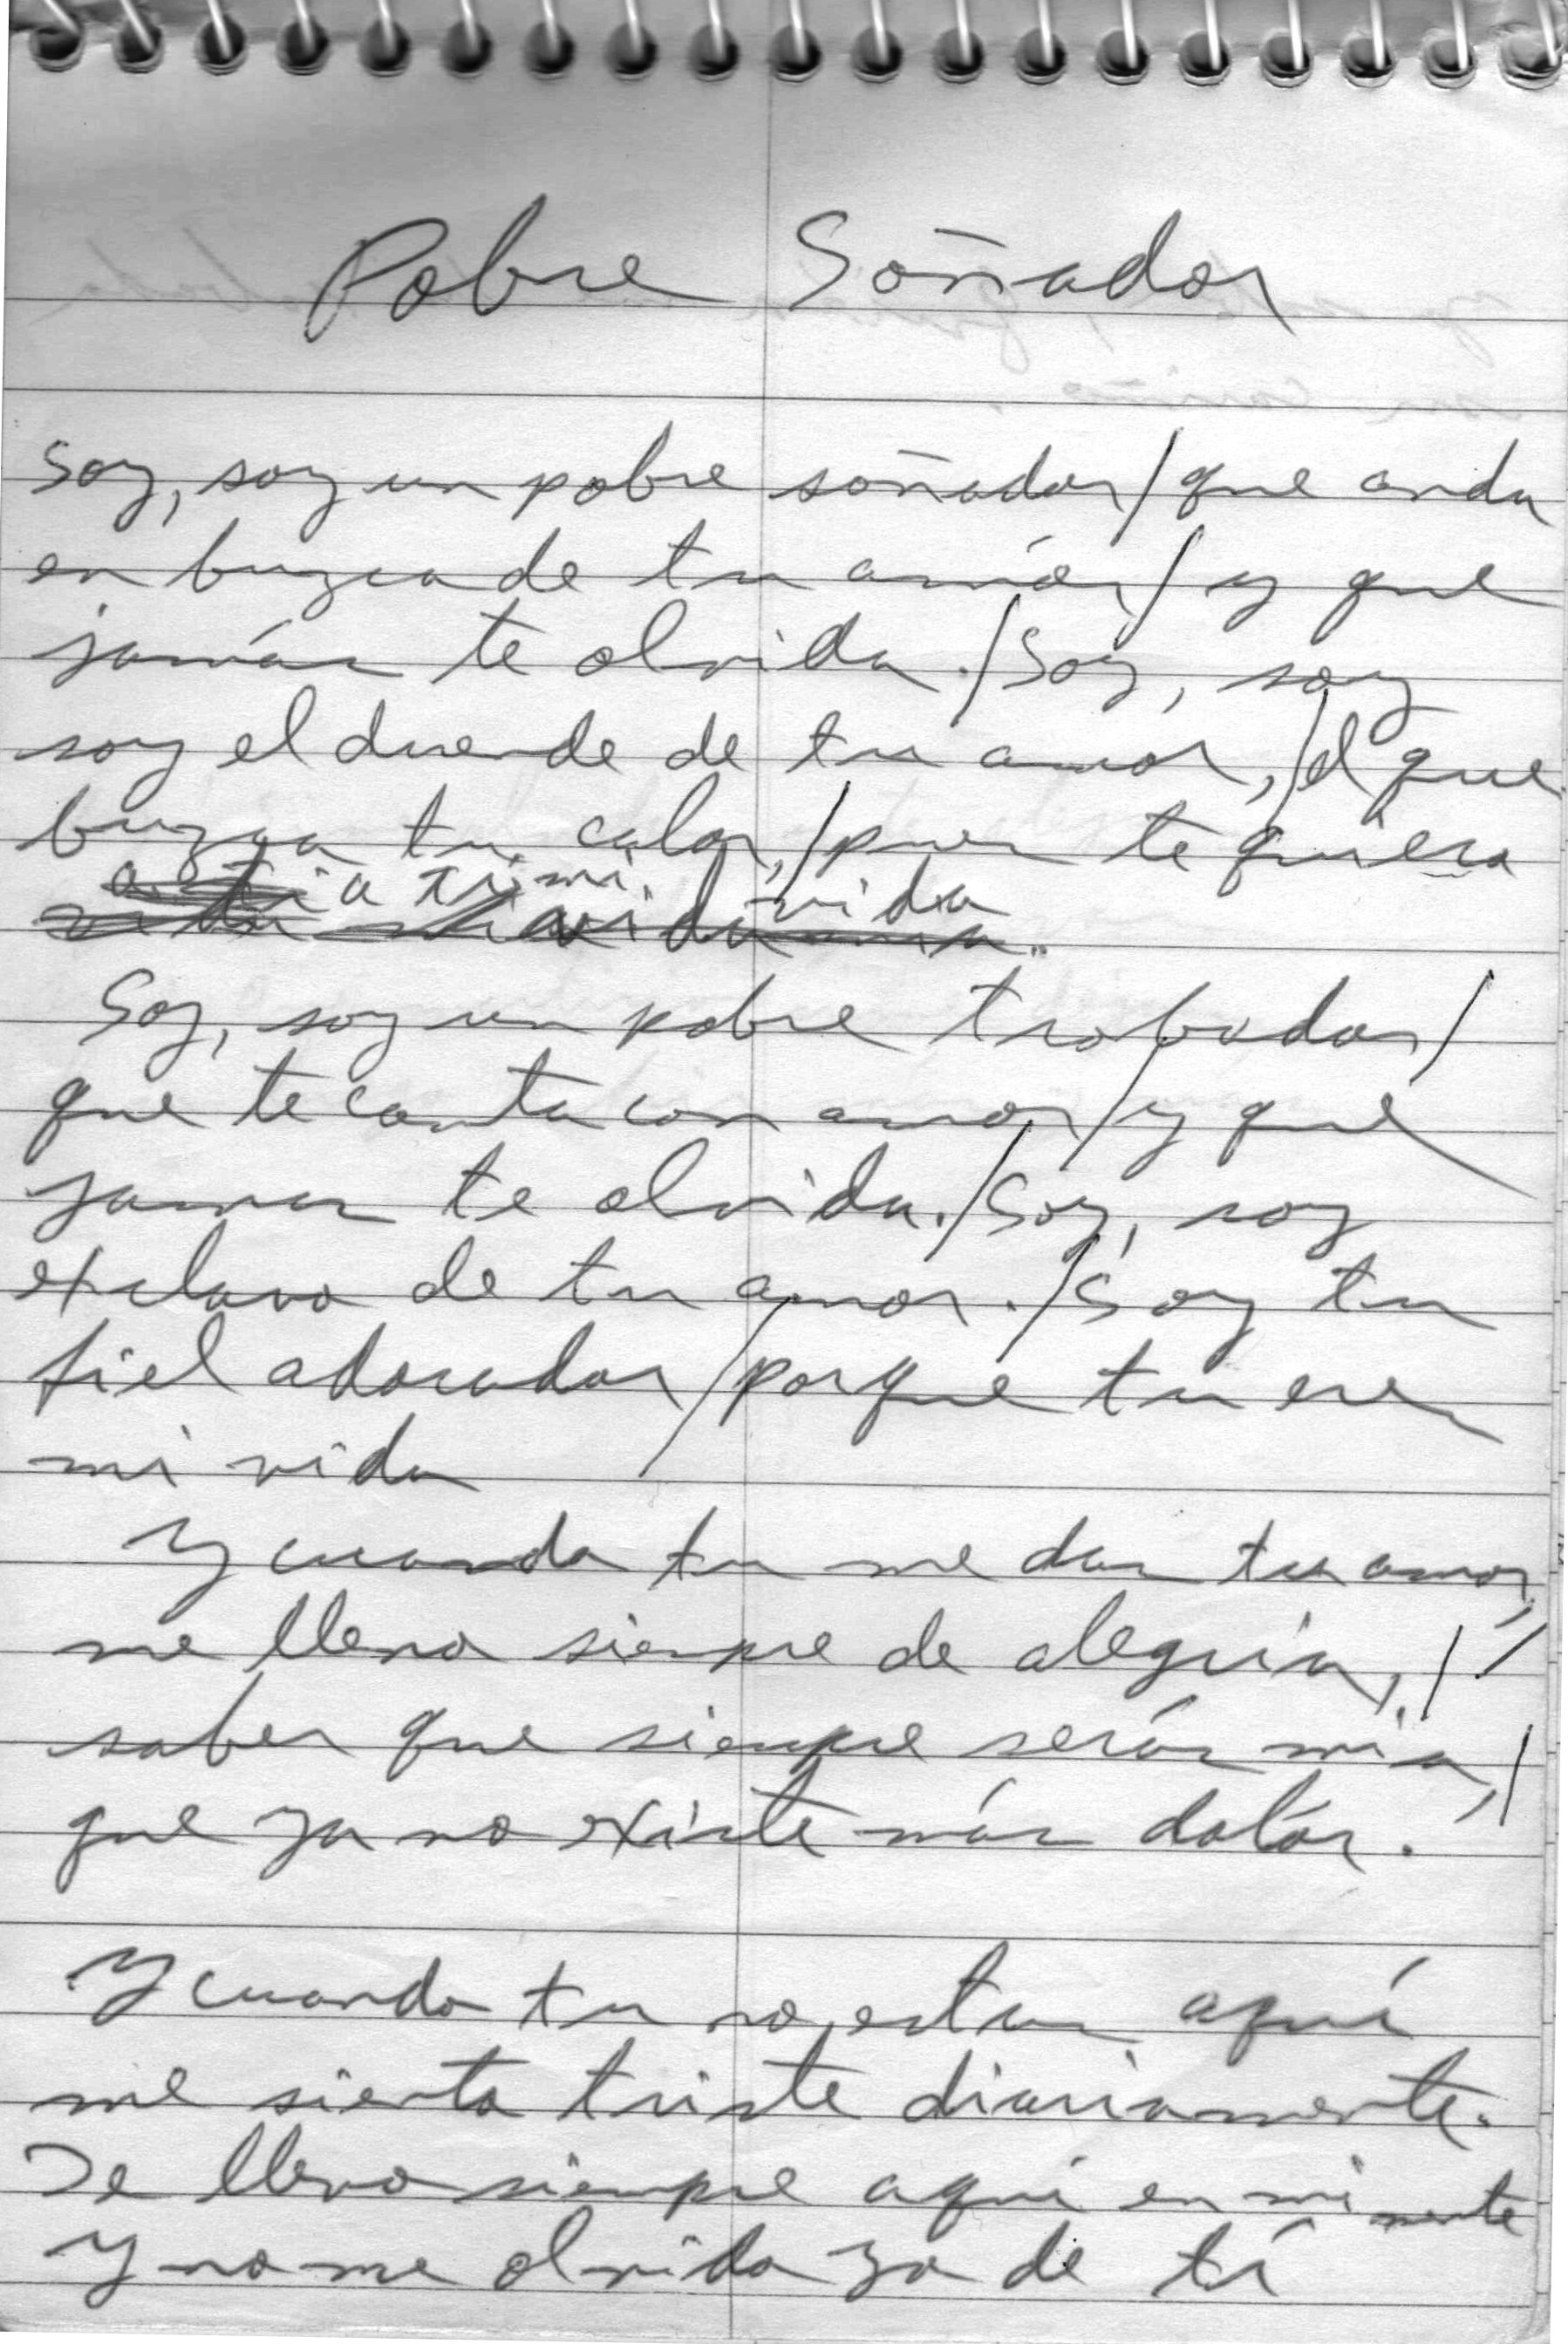 Pobre Soñador
Soy, soy un pobre soñador/que anda
en buzca de tu amór/y que
jamás te olvida./Soy, soy
soy el duende de tu amór,/el que
buzca tu calor,/pues te quiero
a ti mi vida
Soy, soy un pobre trobador/
que te canta con amor/y que
jamas te olvida./Soy, soy
exclavo de tu amor./Soy tu
fiel adorador/porque tu eres
mi vida
Y cuando tu me das tu amor,/
me lleno siempre de alegria,/
saber que siempre serás mia,/
que ya no existe más dolór.
Y cuando tu no estas aquí
me siento triste diariamente.
Te llevo siempre aquí en mi mente
Y no me olvido yo de tí